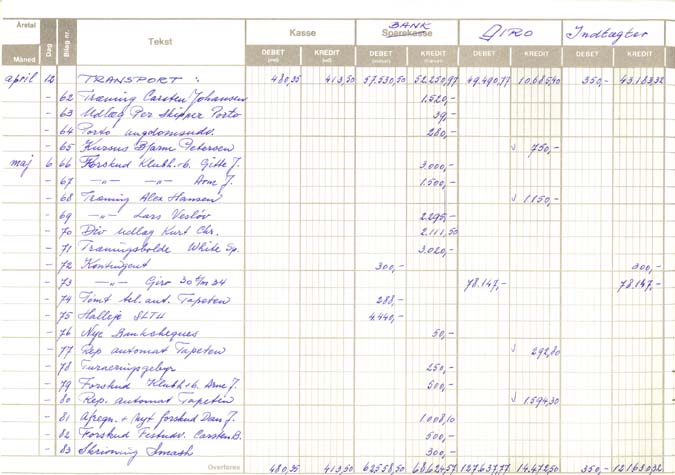 Årstal Kasse BANK Sparekasse GIRO Indtægter
Måned Dag Bilag nr. Tekst DEBET (ind) KREDIT (ud) DEBET KREDIT DEBET KREDIT DEBET KREDIT
april 12 TRANSPORT : 480,35 413,50 57.530,50 52.250,97 49.490,77 10.685,40 350,- 43.183,32
- 62 Træning Carsten Johansen 1.520,-
- 63 Udlæg Per Skipper Porto 39,-
- 64 Porto ungdomsudv. 280,-
- 65 Kursus Bjarne Petersen √ 750,-
maj 6 66 Forskud Klubh.-b. Gitte J. 3.000,-
- 67 -"- -"- Arne J. 1.500,-
- 68 Træning Alex Hansen √ 1.150,-
- 69 -"- Lars Vesløv 2.295,-
- 70 Div udlæg Kurt Chr. 2.111,50
- 71 Træningsbolde White Sp. 3.020,-
- 72 Kontingent 300,- 300,-
- 73 -"- Giro 30 34 78.147,- 78.147,-
- 74 Tømt tel. aut. Tapeten 288,-
- 75 Halleje SLTU 4.440,-
- 76 Nye Bankcheques 50,-
- 77 Rep automat Tapeten √ 292,80
- 78 Turneringsgebyr 250,-
- 79 Forskud Klubh.-b. Arne J. 500,-
- 80 Rep. automat Tapeten √ 1.594,30
- 81 Afregn. + Nyt forskud Dan J. 1.008,10
- 82 Forskud Festudv. Carsten B. 500,-
- 83 Skrivning Smash 300,-
Overføres 480,35 413,50 62558,50 68.624,57 127.637,77 14.472,50 350,- 121.630,32